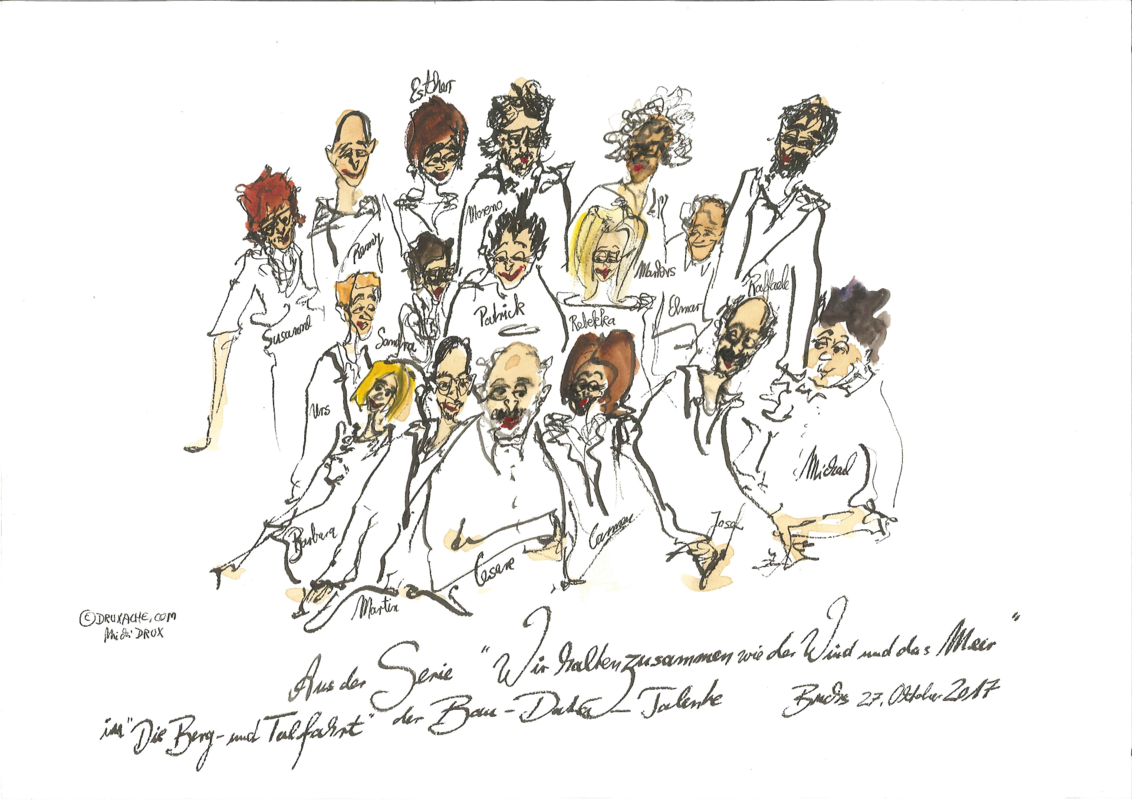 Esther
Moreno
Remy
Markus
Raffaele
Susanne
Patrick
Rebekka
Elmar
Sandra
Urs
Michael
Barbara
Cesare
Carmen
Josef
Martin
©DRUXACHE.COM
Midi DRUX
Aus der Serie "Wir halten zusammen wie der Wind und das Meer"
im "Die Berg- und Talfahrt" der Bau-Daten-Talente
27. Oktober 2017